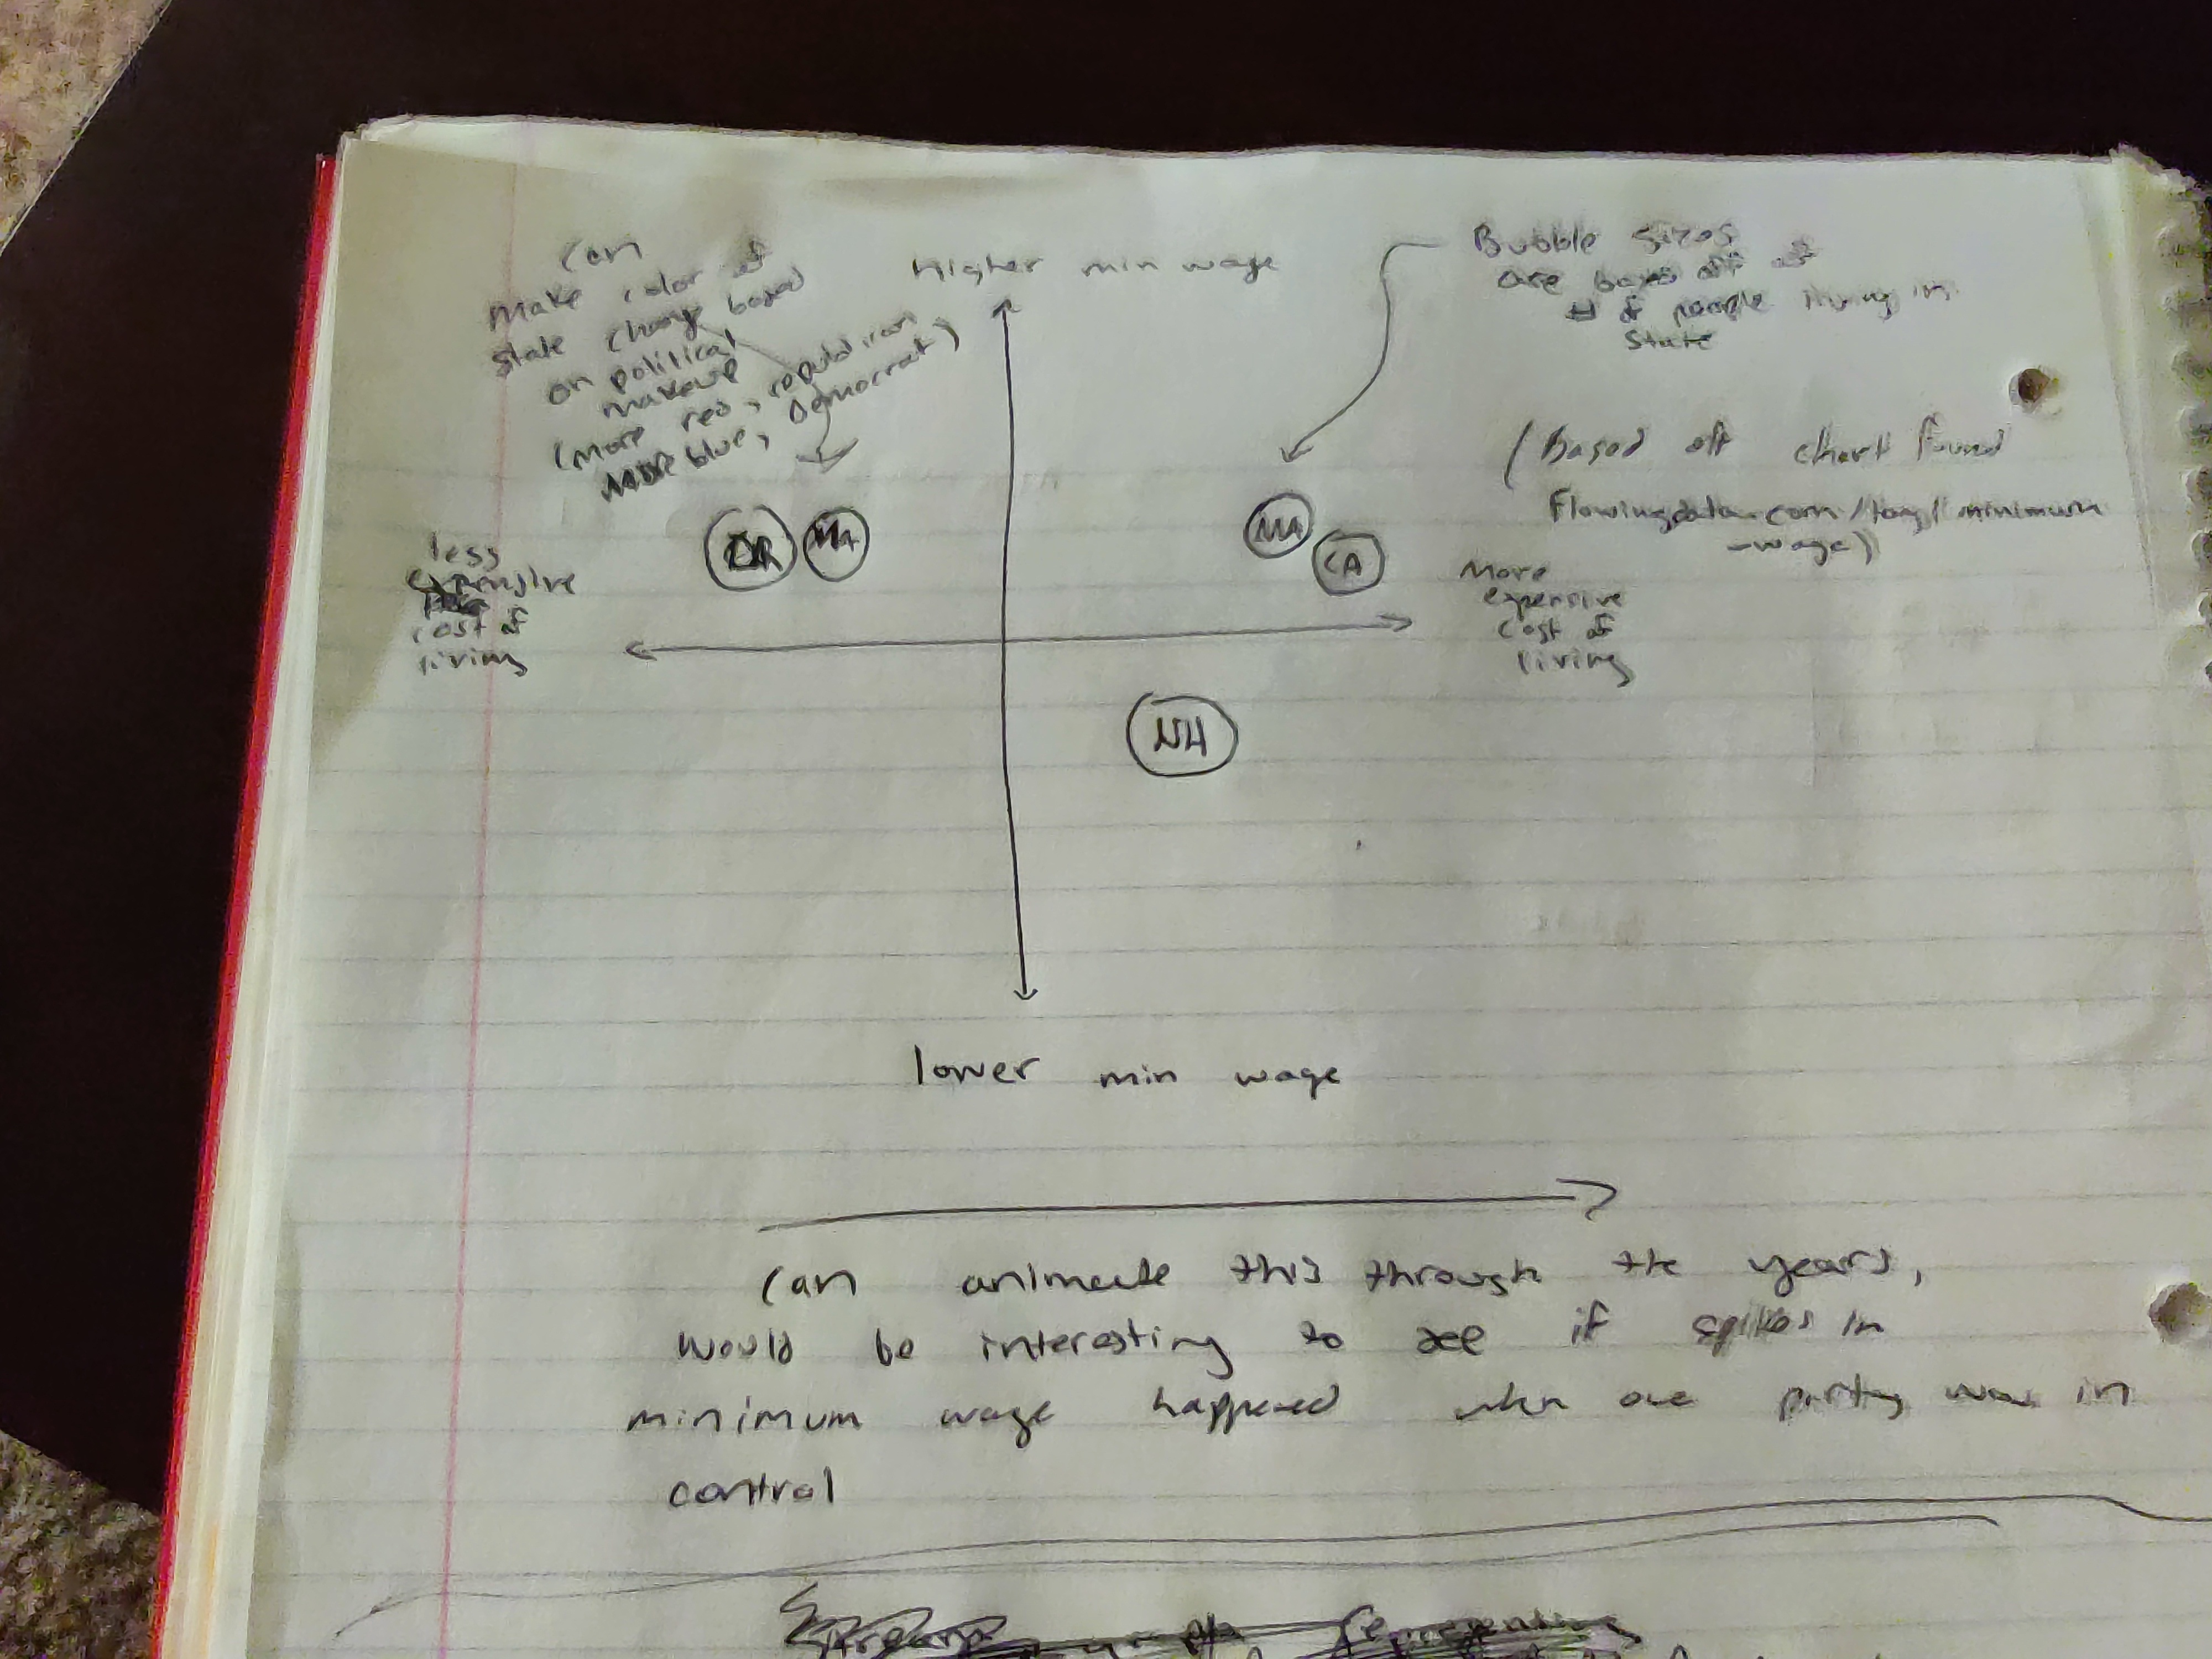 Can
make color of
state change based
on political
makeup
(more red, republican
more blue, Democrat)
Higher min wage
Bubble sizes
are based off of
# of people living in
state
(Based off chart found
Flowingdata.com/tag/minimum
-wage)
less
expensive
cost of
living
OR
MA
CA
More
expensive
cost of
living
NH
lower min wage
Can animate this through the years,
would be interesting to see if spikes in
minimum wage happened when one party was in
control